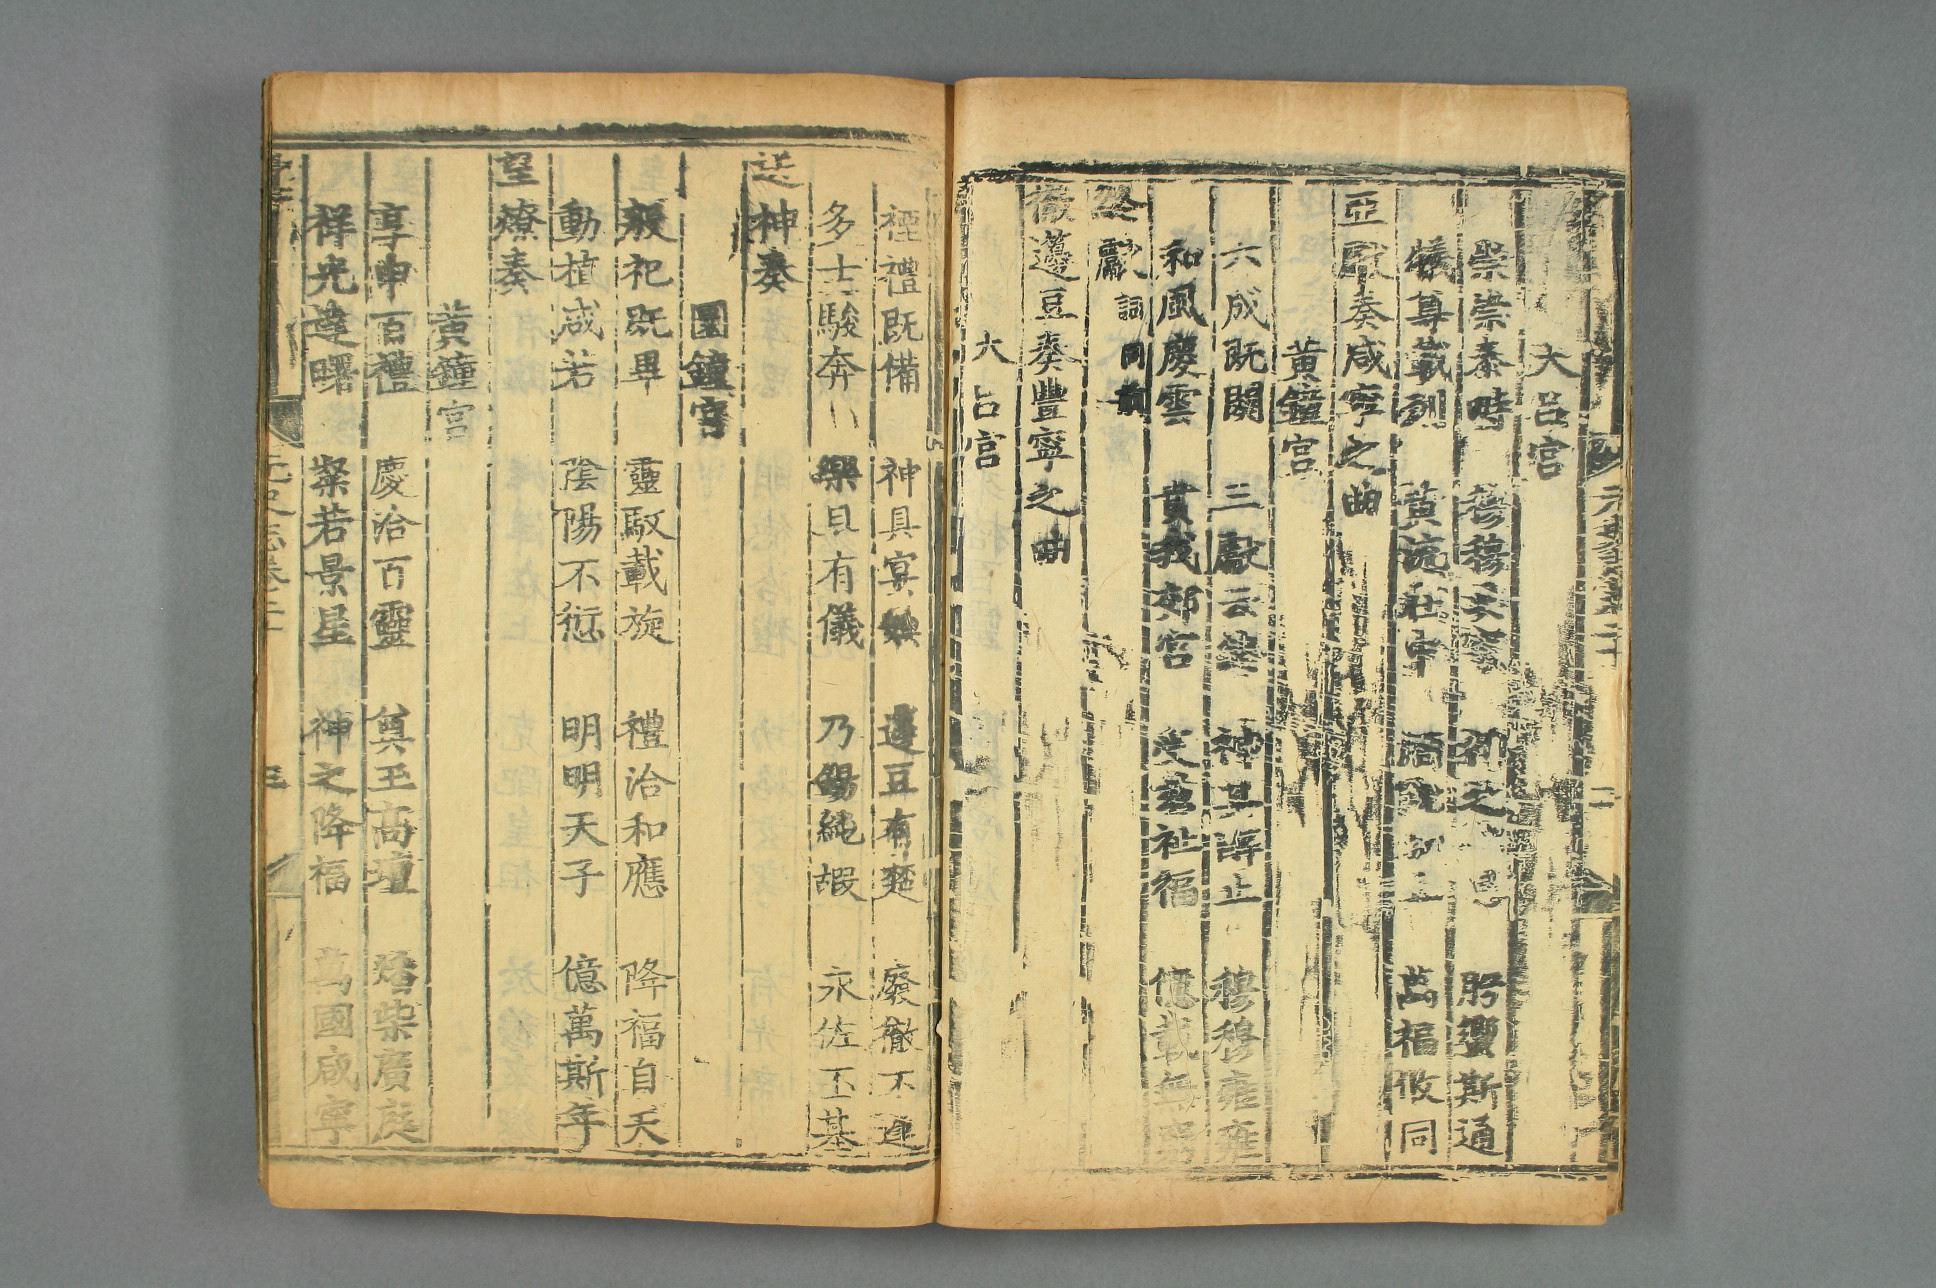 大呂宮
崇崇泰畤 穆穆昊穹 神之 思 肸蠁斯通
犧尊載列 黃流在中 酒既 萬福攸同
亞獻奏咸寧之曲
黃鐘宮
六成既闋 三獻云終 神其 止 穆穆雍雍
和風慶雲 賁我郊宮 受茲祉福 億載無窮
終獻詞同前
徹籩豆奏豐寧之曲
大呂宮
禋禮既備 神具宴娭 籩豆有楚 廢徹不遲
多士駿奔 樂具有儀 乃錫純嘏 永佐丕基
送神奏
圜鐘宮
殷祀既畢 靈馭載旋 禮洽和應 降福自天
動植咸若 陰陽不愆 明明天子 億萬斯年
望燎奏
黃鐘宮
享申百禮 慶洽百靈 奠玉高壇 燔柴廣庭
祥光達曙 粲若景星 神之降福 萬國咸寧